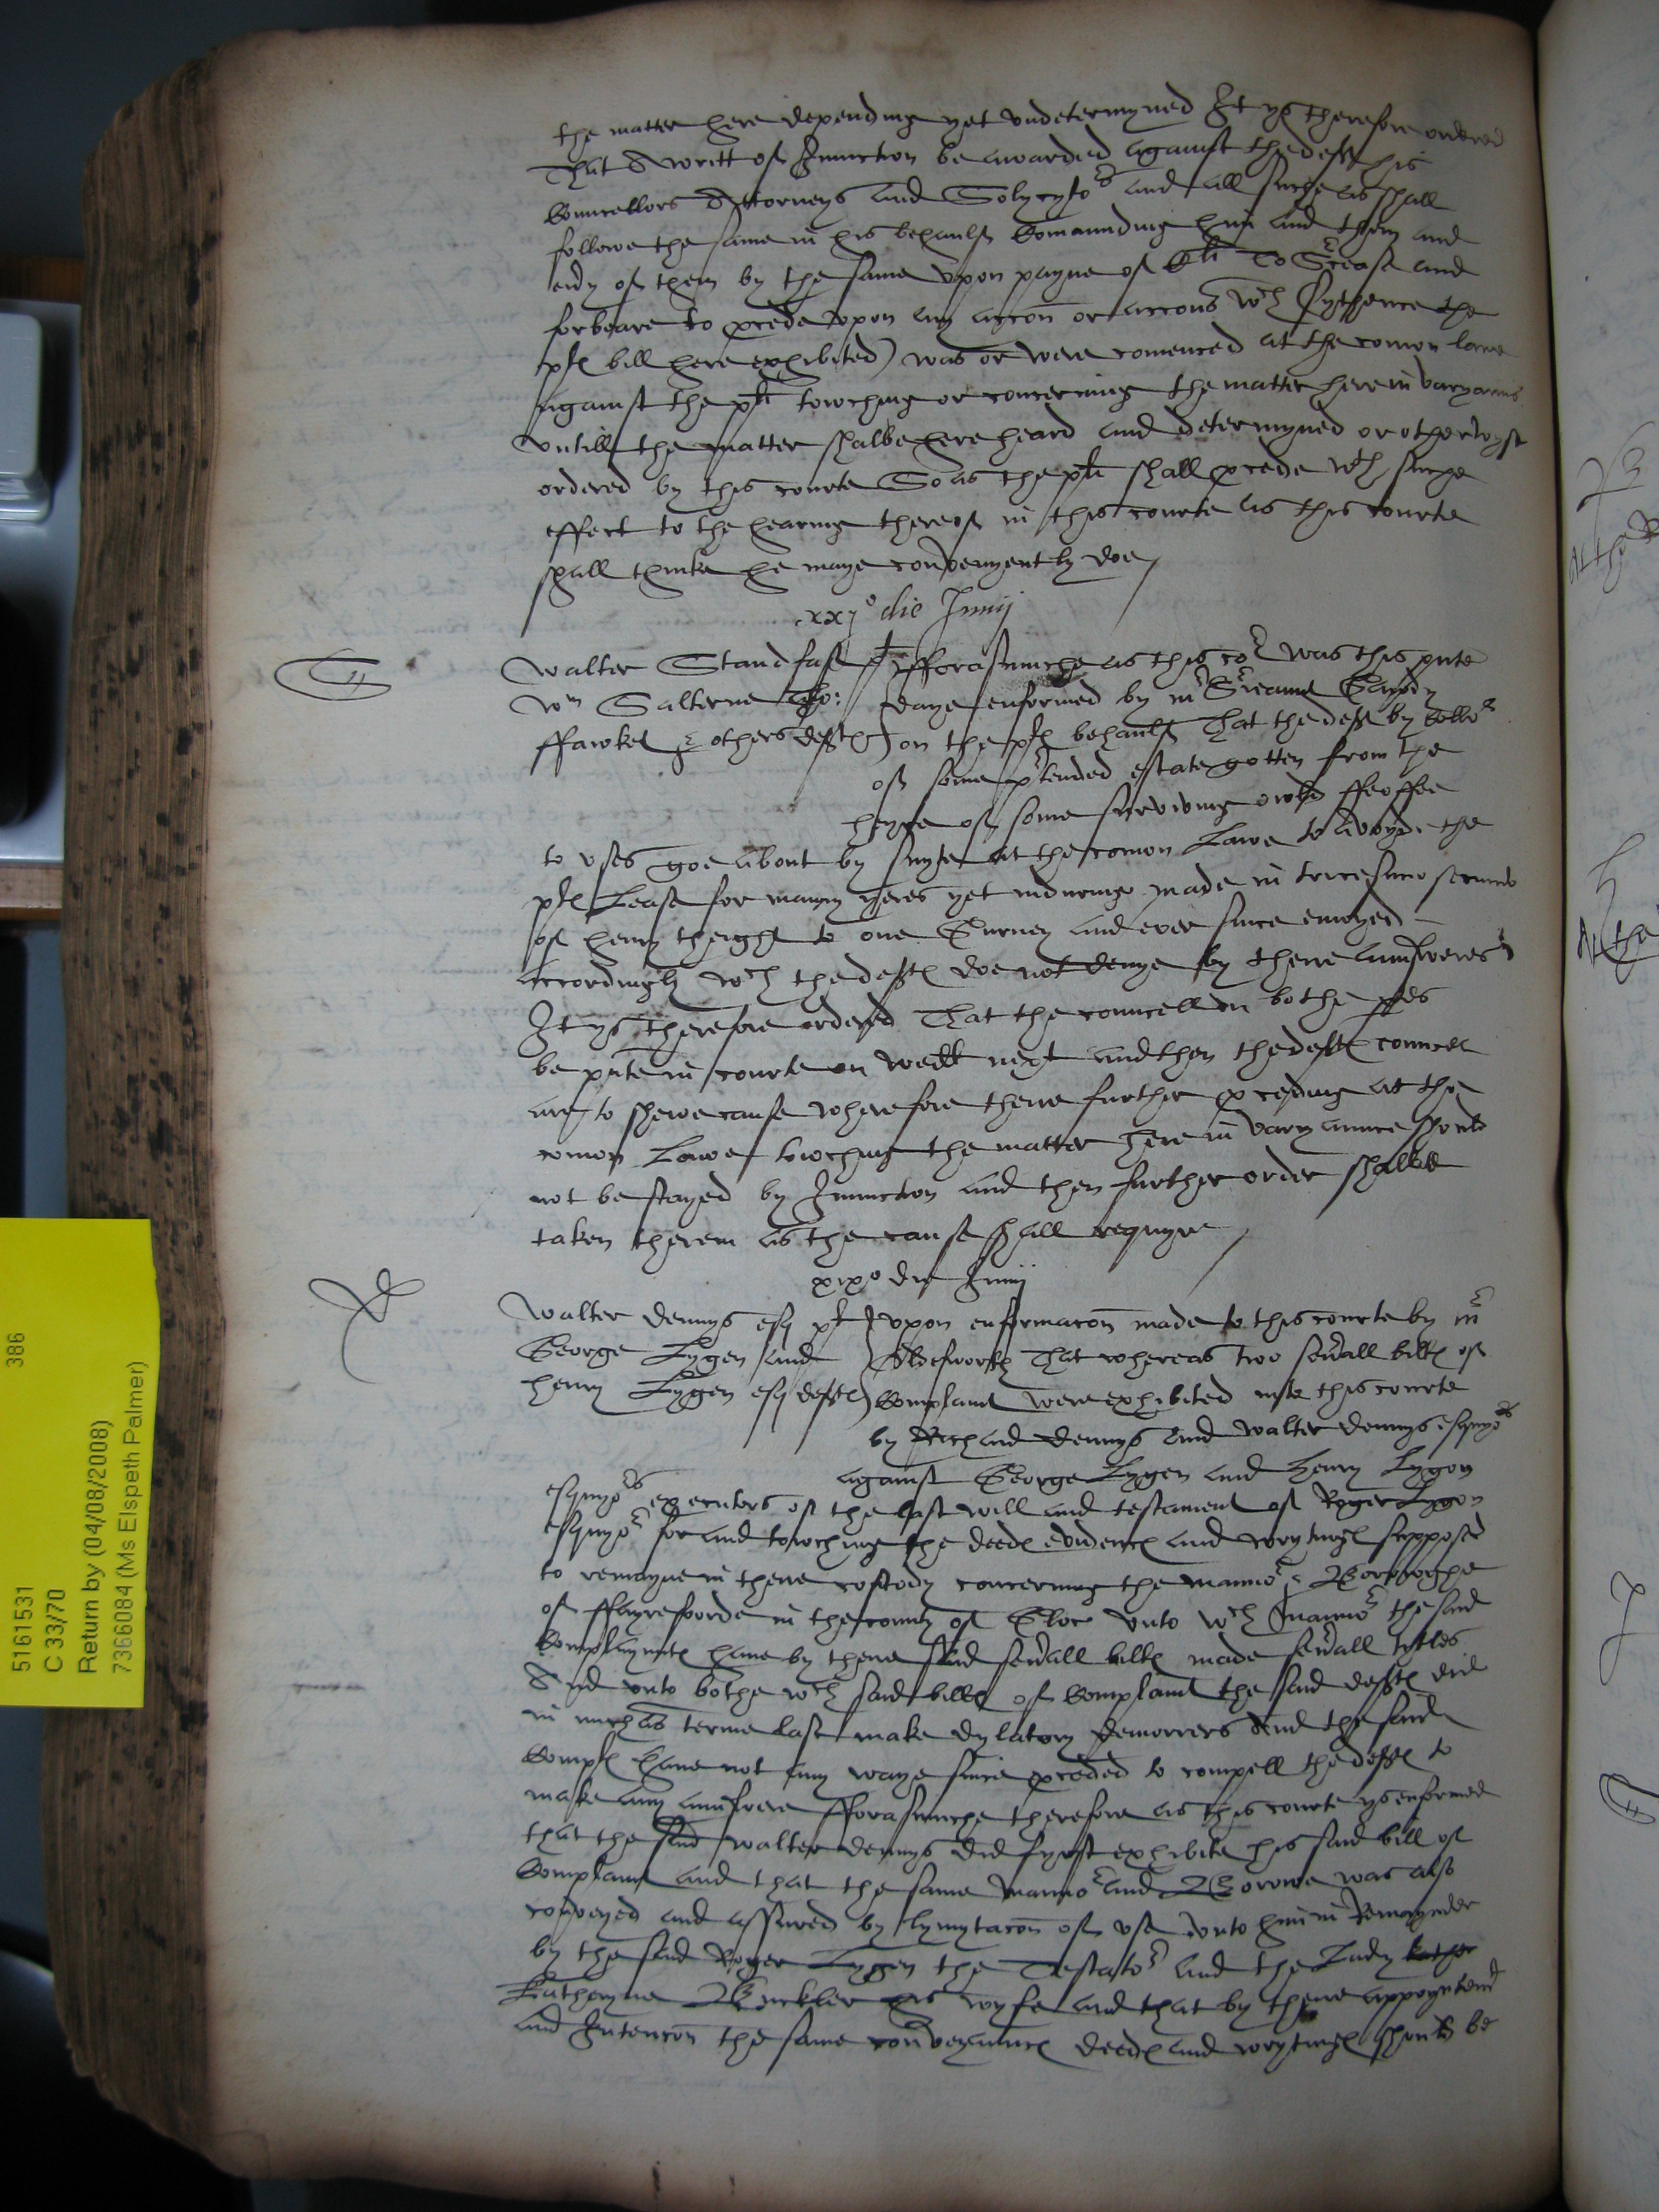 the matter here depending yet undetermyned It ys therefore ordered
That A writt of Iniunction be awarded against the deft his
Councellors Attorneys and Solycyto(rs) and all suche as shall
followe the same in his behaulf Comaunding him and them and
eu(er)y of them by the same upon payne of To Surcease and
forbeare to p(ro)cede upon any accon or accons w(hi)ch (sythence the
pl(tes) bill here exhibited) was or were comenced at the comon lawe
against the pl(t) towching or concerning the matter here in varyaunc
untill the matter shalbe here heard and determyned or otherwyse
ordered by this courte So as the pl(t) shall p(ro)cede w(i)th suche
effect to the hearing thereof in this courte as this courte
shall thinke he maye convenyently doe
xxj° die Junij
Walter Standfast pl(t) fforasmuche as this co(r)t was this p(rese)nte
W(m) Salterne Tho: daye enformed by m(r) S(er)ieaunt Gawdy
ffawkes & others def(tes) on the pl(tes) behaulf That the def(tes) by collo(r)
of some p(re)tended estate gotten from the
heyre of some surviving owld ffeoffee
to uses goe about by suyte at the comon Lawe to avoyde the
pl(tes) Lease for many yeres yet induring made in tricesimo secundo
of henry theight to one Gurney and ever since enioyed
accordingly w(hi)ch the def(tes) doe not denye by there aunsweres
It ys therefore ordered That the councell on bothe p(ar)tes
be p(rese)nte in courte on next and then the def(tes) councell
are to shewe cause wherefore there further p(ro)ceding at the
comon Lawe towching the matter here in varyaunce should
not be stayed by Iniunction and then further order shalbe
taken therein as the cause shall requyre
xixo die Junij
Walter dennys esq pl(t) Upon enformacon made to this courte by m(r)
George Lygen and That whereas two seu(er)all billes of
henry Lygen esq def(tes) Complaint were exhibited into this courte
by Richard dennys and walter dennys esquyo(rs)
against George Lygen and henry Lygon
esquyo(rs) executors of the last will and testament of Roger Lygon
esquyo(r) for and towching the deedes evidences and wrytinges supposed
to remayne in there custody concerning the manno(r) & Borroughe
of ffayrefoorde in the county of Glouc unto w(hi)ch manno(r) the said
Complaynntes have by there said seu(er)all billes made seu(er)all tytles
And unto bothe w(hi)ch said billes of Complaint the said def(tes) did
in mychas terme last make dylatory demorrers And the said
Compl(tes) have not any waye since p(ro)ceded to compell the def(tes) to
make any aunswere fforasmuche therefore as this courte ys enformed
that the said walter dennys did fyrst exhibite his said bill of
Complaint and that the same manno(r) and Borowe was also
conveyed and assured by lymytacon of use unto him in Remaynder
by the said Roger Lygen the Testato(r) and the Lady kather
Katheryne Buckler his wyfe and that by there appoyntem(t)
and Intencon the same conveyaunces deedes and wrytinges should be
5161531 386
C 33/70
Return by (04/08/2008)
7366084 (Ms Elspeth Palmer)